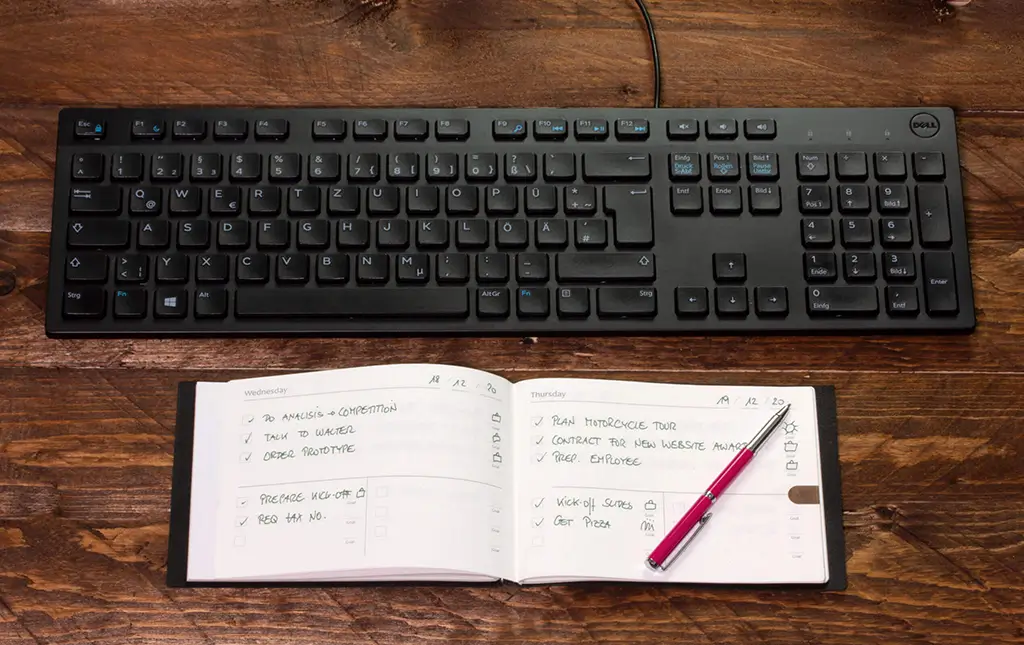 Esc F1 F2 F3 F4 F5 F6 F7 F8 F9 F10 F11 F12 DELL
° ^ ! 1 " 2 ² § 3 ³ $ 4 % 5 & 6 / 7 { ( 8 [ ) 9 ] = 0 } ? ß \ Einfg Druck S-Abf Pos 1 Rollen Bild↑ Pause Untbr Num ÷ × -
Q @ W E € R T Z U I O P Ü * + ~ Entf Ende Bild↓ 7 Pos1 8 ↑ 9 Bild↑ +
A S D F G H J K L Ö Ä ' # 4 ← 5 6 →
> < | Y X C V B N M µ ; , : . _ - ↑ 1 Ende 2 ↓ 3 Bild↓ Enter
Strg Fn Alt Alt Gr Fn Strg ← ↓ → 0 Einfg , Entf
Wednesday 18 / 12 / 20
DO ANALISIS → COMPETITION
TALK TO WALTER
ORDER PROTOTYPE
PREPARE KICK-OFF
REQ TAX NO.
Thursday 19 / 12 / 20
PLAN MOTORCYCLE TOUR
CONTRACT FOR NEW WEBSITE AWARD
PREP. EMPLOYEE
KICK-OFF SLIDES
GET PIZZA